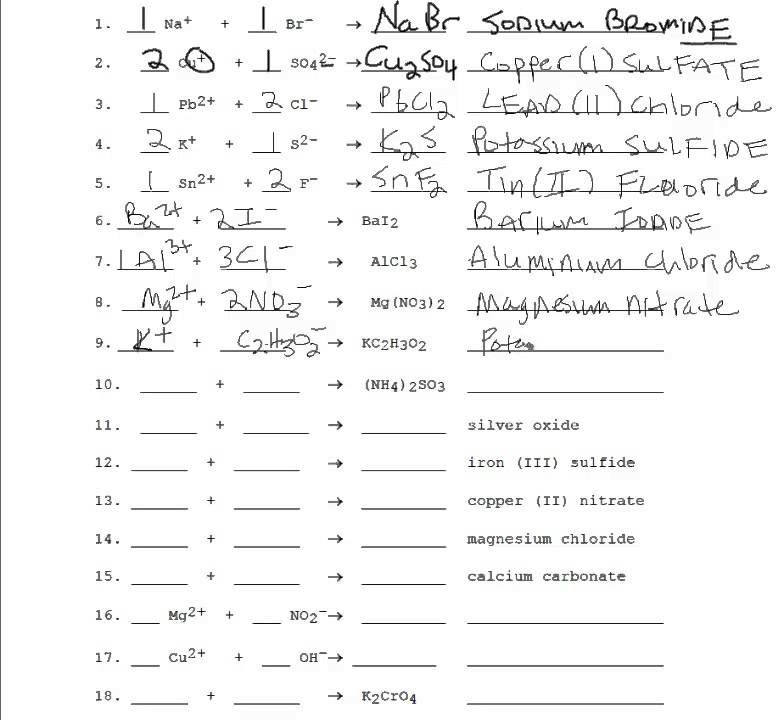 1. 1 Na+ + 1 Br- → NaBr SODIUM BROMIDE
2. 2 Cu+ + 1 SO42- → Cu2SO4 Copper(I) SULFATE
3. 1 Pb2+ + 2 Cl- → PbCl2 LEAD (II) Chloride
4. 2 K+ + 1 S2- → K2S Potassium SULFIDE
5. 1 Sn2+ + 2 F- → SnF2 Tin(II) Fluoride
6. Ba2+ + 2I- → BaI2 BARIUM IODIDE
7. 1Al3+ + 3Cl- → AlCl3 Aluminium chloride
8. Mg2+ + 2NO3- → Mg(NO3)2 Magnesium nitrate
9. K+ + C2H3O2- → KC2H3O2 Potas
10. ____ + ____ → (NH4)2SO3 ____
11. ____ + ____ → ____ silver oxide
12. ____ + ____ → ____ iron (III) sulfide
13. ____ + ____ → ____ copper (II) nitrate
14. ____ + ____ → ____ magnesium chloride
15. ____ + ____ → ____ calcium carbonate
16. __ Mg2+ + __ NO2- → ____ ____
17. __ Cu2+ + __ OH- → ____ ____
18. ____ + ____ → K2CrO4 ____